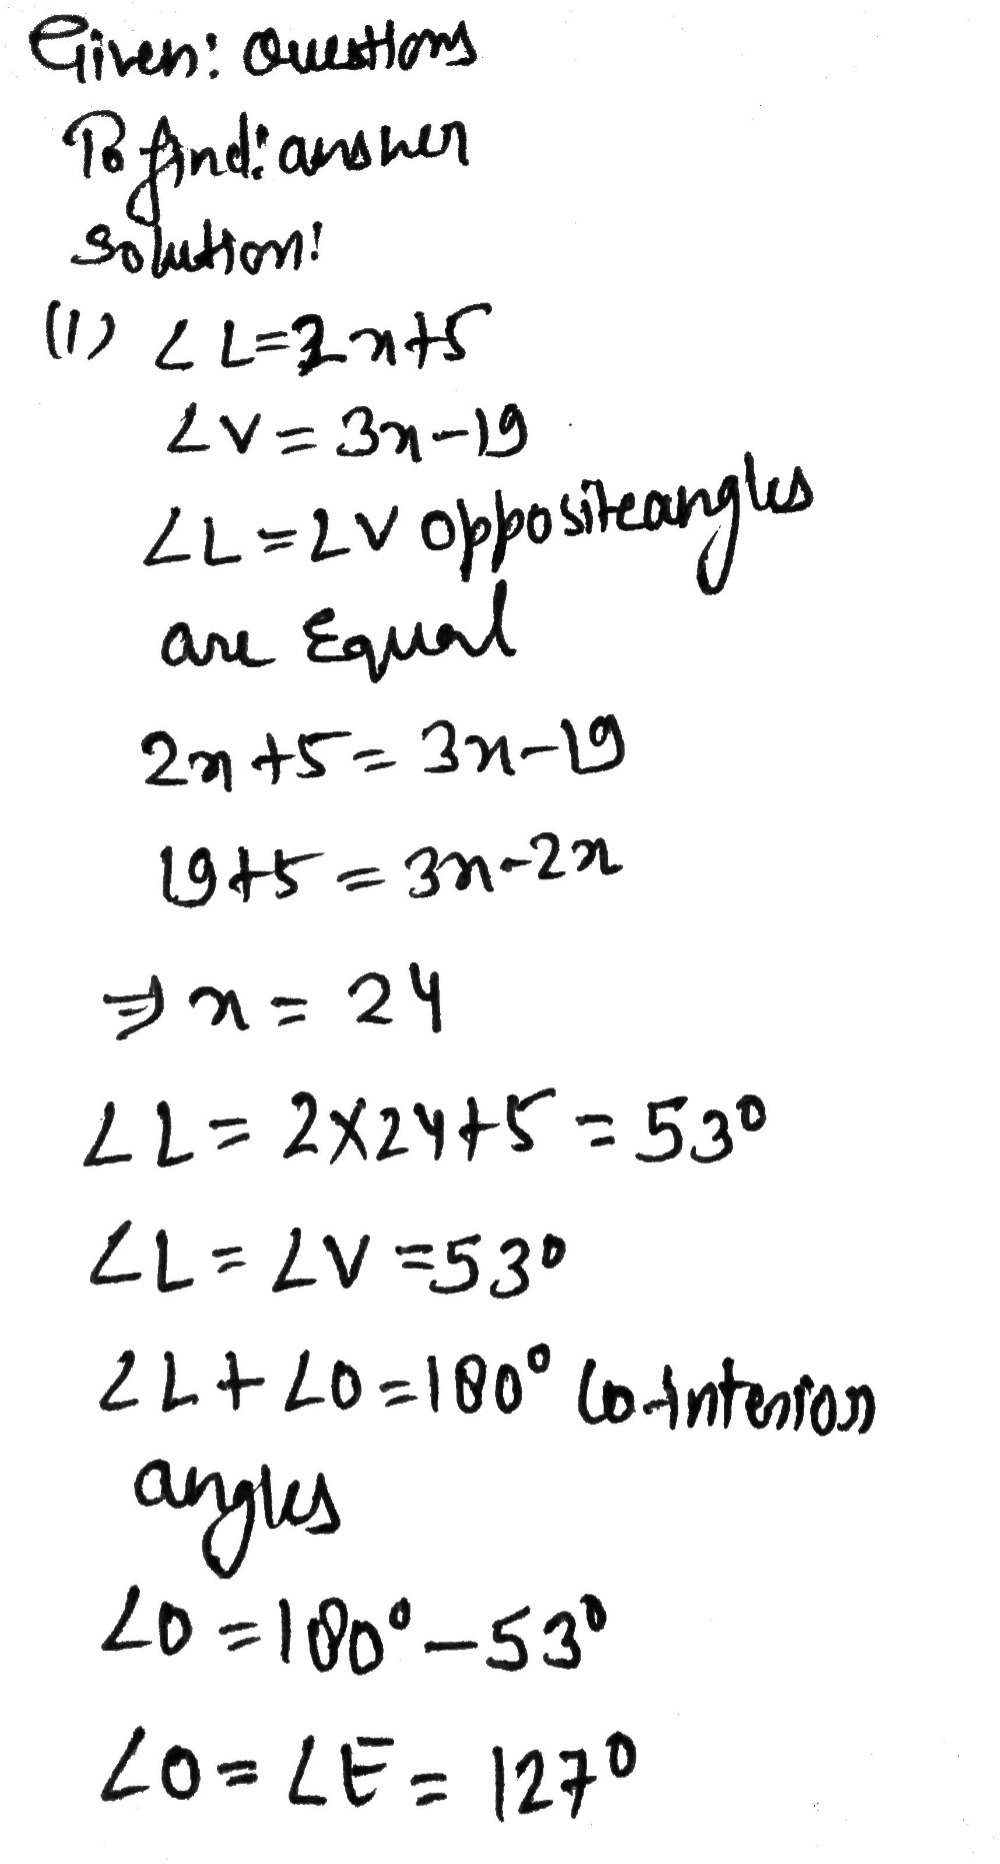 Given: Questions
To find: answer
Solution:
(1) ∠L=2x+5
∠V=3x-19
∠L=∠V opposite angles
are Equal
2x+5=3x-19
19+5=3x-2x
⇒x=24
∠L=2×24+5=53°
∠L=∠V=53°
∠L+∠O=180° Co-interior
angles
∠O=180°-53°
∠O=∠E=127°